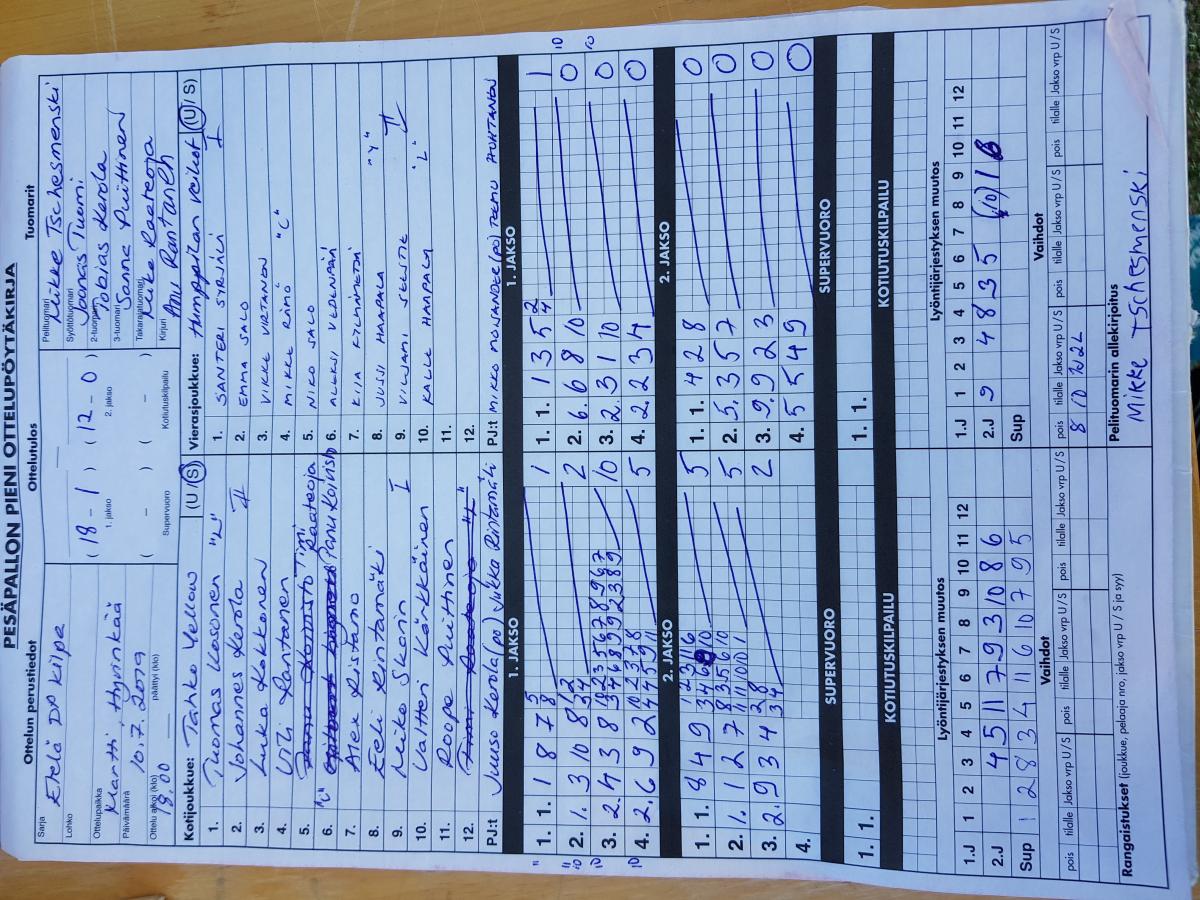 PESÄPALLON PIENI OTTELUPÖYTÄKIRJA
Ottelun perustiedot
Ottelutulos
Tuomarit
Sarja
Etelä DP Kilpa
Lohko
Ottelupaikka
Martti, Hyvinkää
Päivämäärä
10.7.2019
Ottelu alkoi (klo)
18.00
päättyi (klo)
( 18 - 1 ) ( 12 - 0 )
1. jakso
2. jakso
( - ) ( - )
Supervuoro
Kotiutuskilpailu
Pelituomari
Mikke Tschesmenski
Syöttötuomari
Joonas Tuomi
2-tuomari
Tobias Kerola
3-tuomari
Sanna Puittinen
Takarajatuomari
Mike Raateoja
Kirjuri
Anu Rantanen
Kotijoukkue: Tahko Yellow (U / S)
1. Tuomas Kosonen "L"
2. Johannes Kerola II
3. Luka Kokkonen
4. Ville Rantanen
5. Timi Raateoja
6. "C" Panu Koivisto
7. Alex Ristamo
8. Eeli Rintamäki
9. Miko Skorin I
10. Valtteri Kärkkäinen
11. Roope Puittinen
12.
PJ:t Juuso Kerola (po) Jukka Rintamäki
Vierasjoukkue: Humppilan Veikot (U / S)
1. SANTERI SYRJÄLÄ I
2. EMMA SALO
3. VIKKE VIRTANEN
4. MIKKE RÄMÖ "C"
5. NIKO SALO
6. ALEKSI VEDENPÄÄ
7. KIIA
8. JUSSI HAAPALA "Y"
9. VILJAMI II
10. KALLE HAAPALA "L"
11.
12.
PJ:t MIKKO (po) TEEMU HUHTANEN
1. JAKSO
1. 1. 1 8 7 5 8 1
2. 1. 3 10 8 2
3. 2. 4 3 8 10
4. 2. 6 9 2 5
2. JAKSO
1. 1. 8 4 9 5
2. 1. 1 2 7 5
3. 2. 9 3 4 2
4.
1. JAKSO
1. 1. 1 3 5 2 4 1
2. 6. 6 8 10 0
3. 2. 3 1 10 0
4. 2. 2 3 4 0
2. JAKSO
1. 1. 4 2 8 0
2. 5. 3 5 7 0
3. 9. 9 2 3 0
4. 5 5 4 9 0
SUPERVUORO
1. 1.
KOTIUTUSKILPAILU
SUPERVUORO
1. 1.
KOTIUTUSKILPAILU
Lyöntijärjestyksen muutos
1.J 1 2 3 4 5 6 7 8 9 10 11 12
2.J 4 5 11 7 9 3 10 8 6
Sup 1 2 8 3 4 11 6 10 7 9 5
Vaihdot
pois tilalle Jakso vrp U / S pois tilalle Jakso vrp U / S pois tilalle Jakso vrp U / S
Lyöntijärjestyksen muutos
1.J 1 2 3 4 5 6 7 8 9 10 11 12
2.J 9 4 8 3 5 (10) 1 6
Sup
Vaihdot
pois tilalle Jakso vrp U / S pois tilalle Jakso vrp U / S pois tilalle Jakso vrp U / S
8 10 2
Rangaistukset (joukkue, pelaaja nro, jakso vrp U / S ja syy)
Pelituomarin allekirjoitus
Mikke Tschesmenski